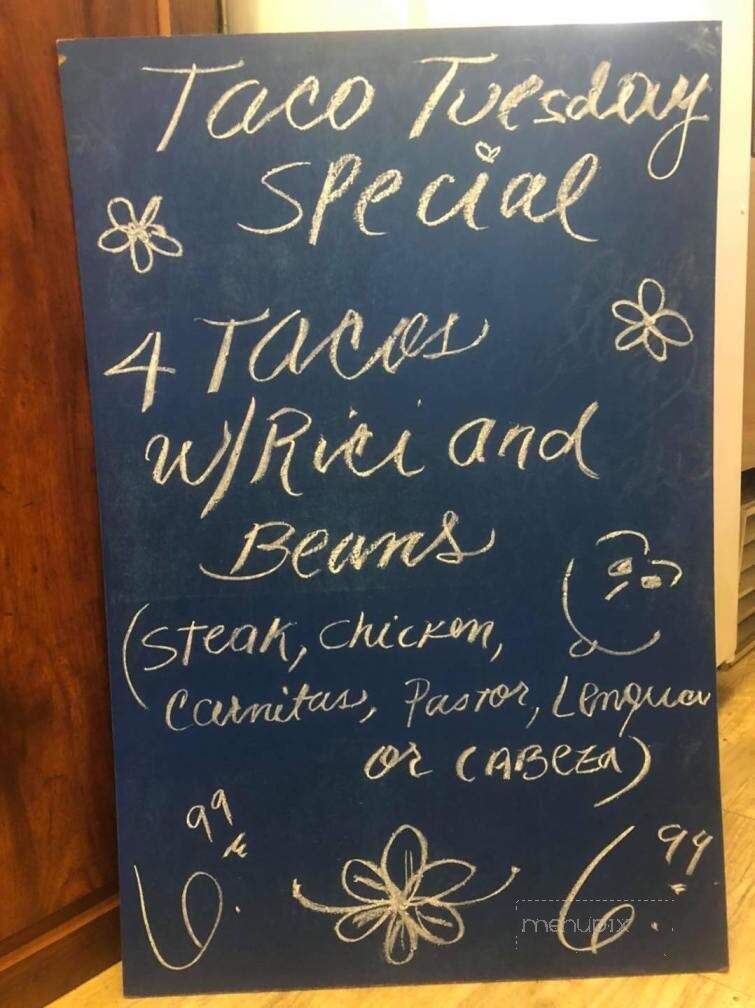 Taco Tuesday
Special
4 Tacos
w/Rici and
Beans
(Steak, chicken,
Carnitas, Pastor, Lengua
or CABEZA)
6.99
6.99
menupix